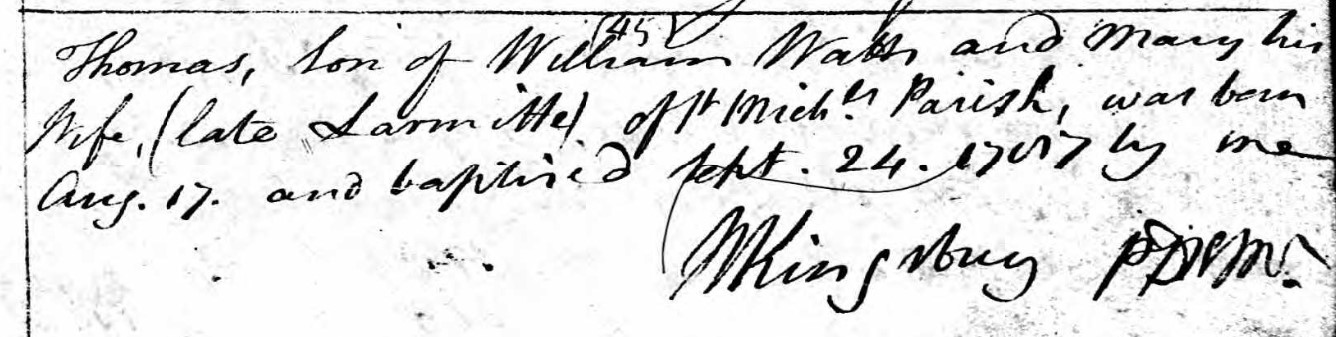 (45)
Thomas, Son of William Watts and Mary his
Wife, (late Larmitte) of St Michls Parish, was born
Aug. 17. and baptized Sept. 24. 1787 by me
WKingsbury